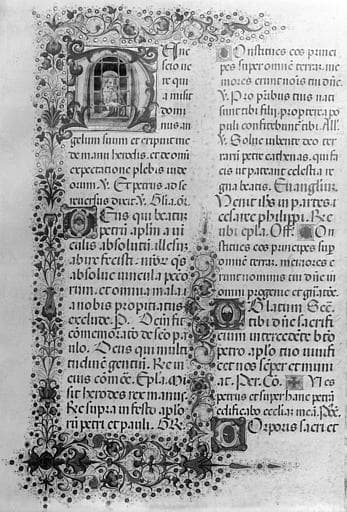 Nunc
scio ve
re qui
a misit
domi
nus an
gelum suum et eripuit me
de manu herodis. et de omi
expectatione plebis iude
orum. V. Et petrus ad se
reuersus dixit. V. Glia. or.
Deus qui beatuz
petru aplm a ui
culis absolutu illesuz
abire fecisti. nibr qs
absolue uincula pcco
rum. et omnia mala
a nobis propitiatus
exclude. P. Dein fit
comemorato de sco pa
ulo. Deus qui multi
tudine gentiu. Re in
eius comoe. Epla. Mi
sit herodes rex manus.
Re supra in festo aplo
ru petri et pauli. GR.
Constitues eos princi
pes super omnem terrar. me
mores erunt nois tui dne.
V. Pro pribus tuis nati
sunt tibi filii. propterea po
puli confitebunt tibi. All.
V. Solue iubente deo ter
rar petre cathenas. qui fa
cis ut pateant celestia re
gna beatis. Euangliuz.
Venit ihs in partes
cesaree philippi. Re
tibi cpla. Off. Con
stitues eos principes sup
omnem terrar. memores e
runt nominis tui dne in
omni progenie et gnatoe.
Oblatum. Sec.
tibi dne sacrifi
cium intercedete bto
petro aplo tuo uiuifi
cet nos semper et muni
at. Per. Co. Tu es
petrus et super hanc petra
edificabo eccliaz mea. Poc.
Corporis sacri et